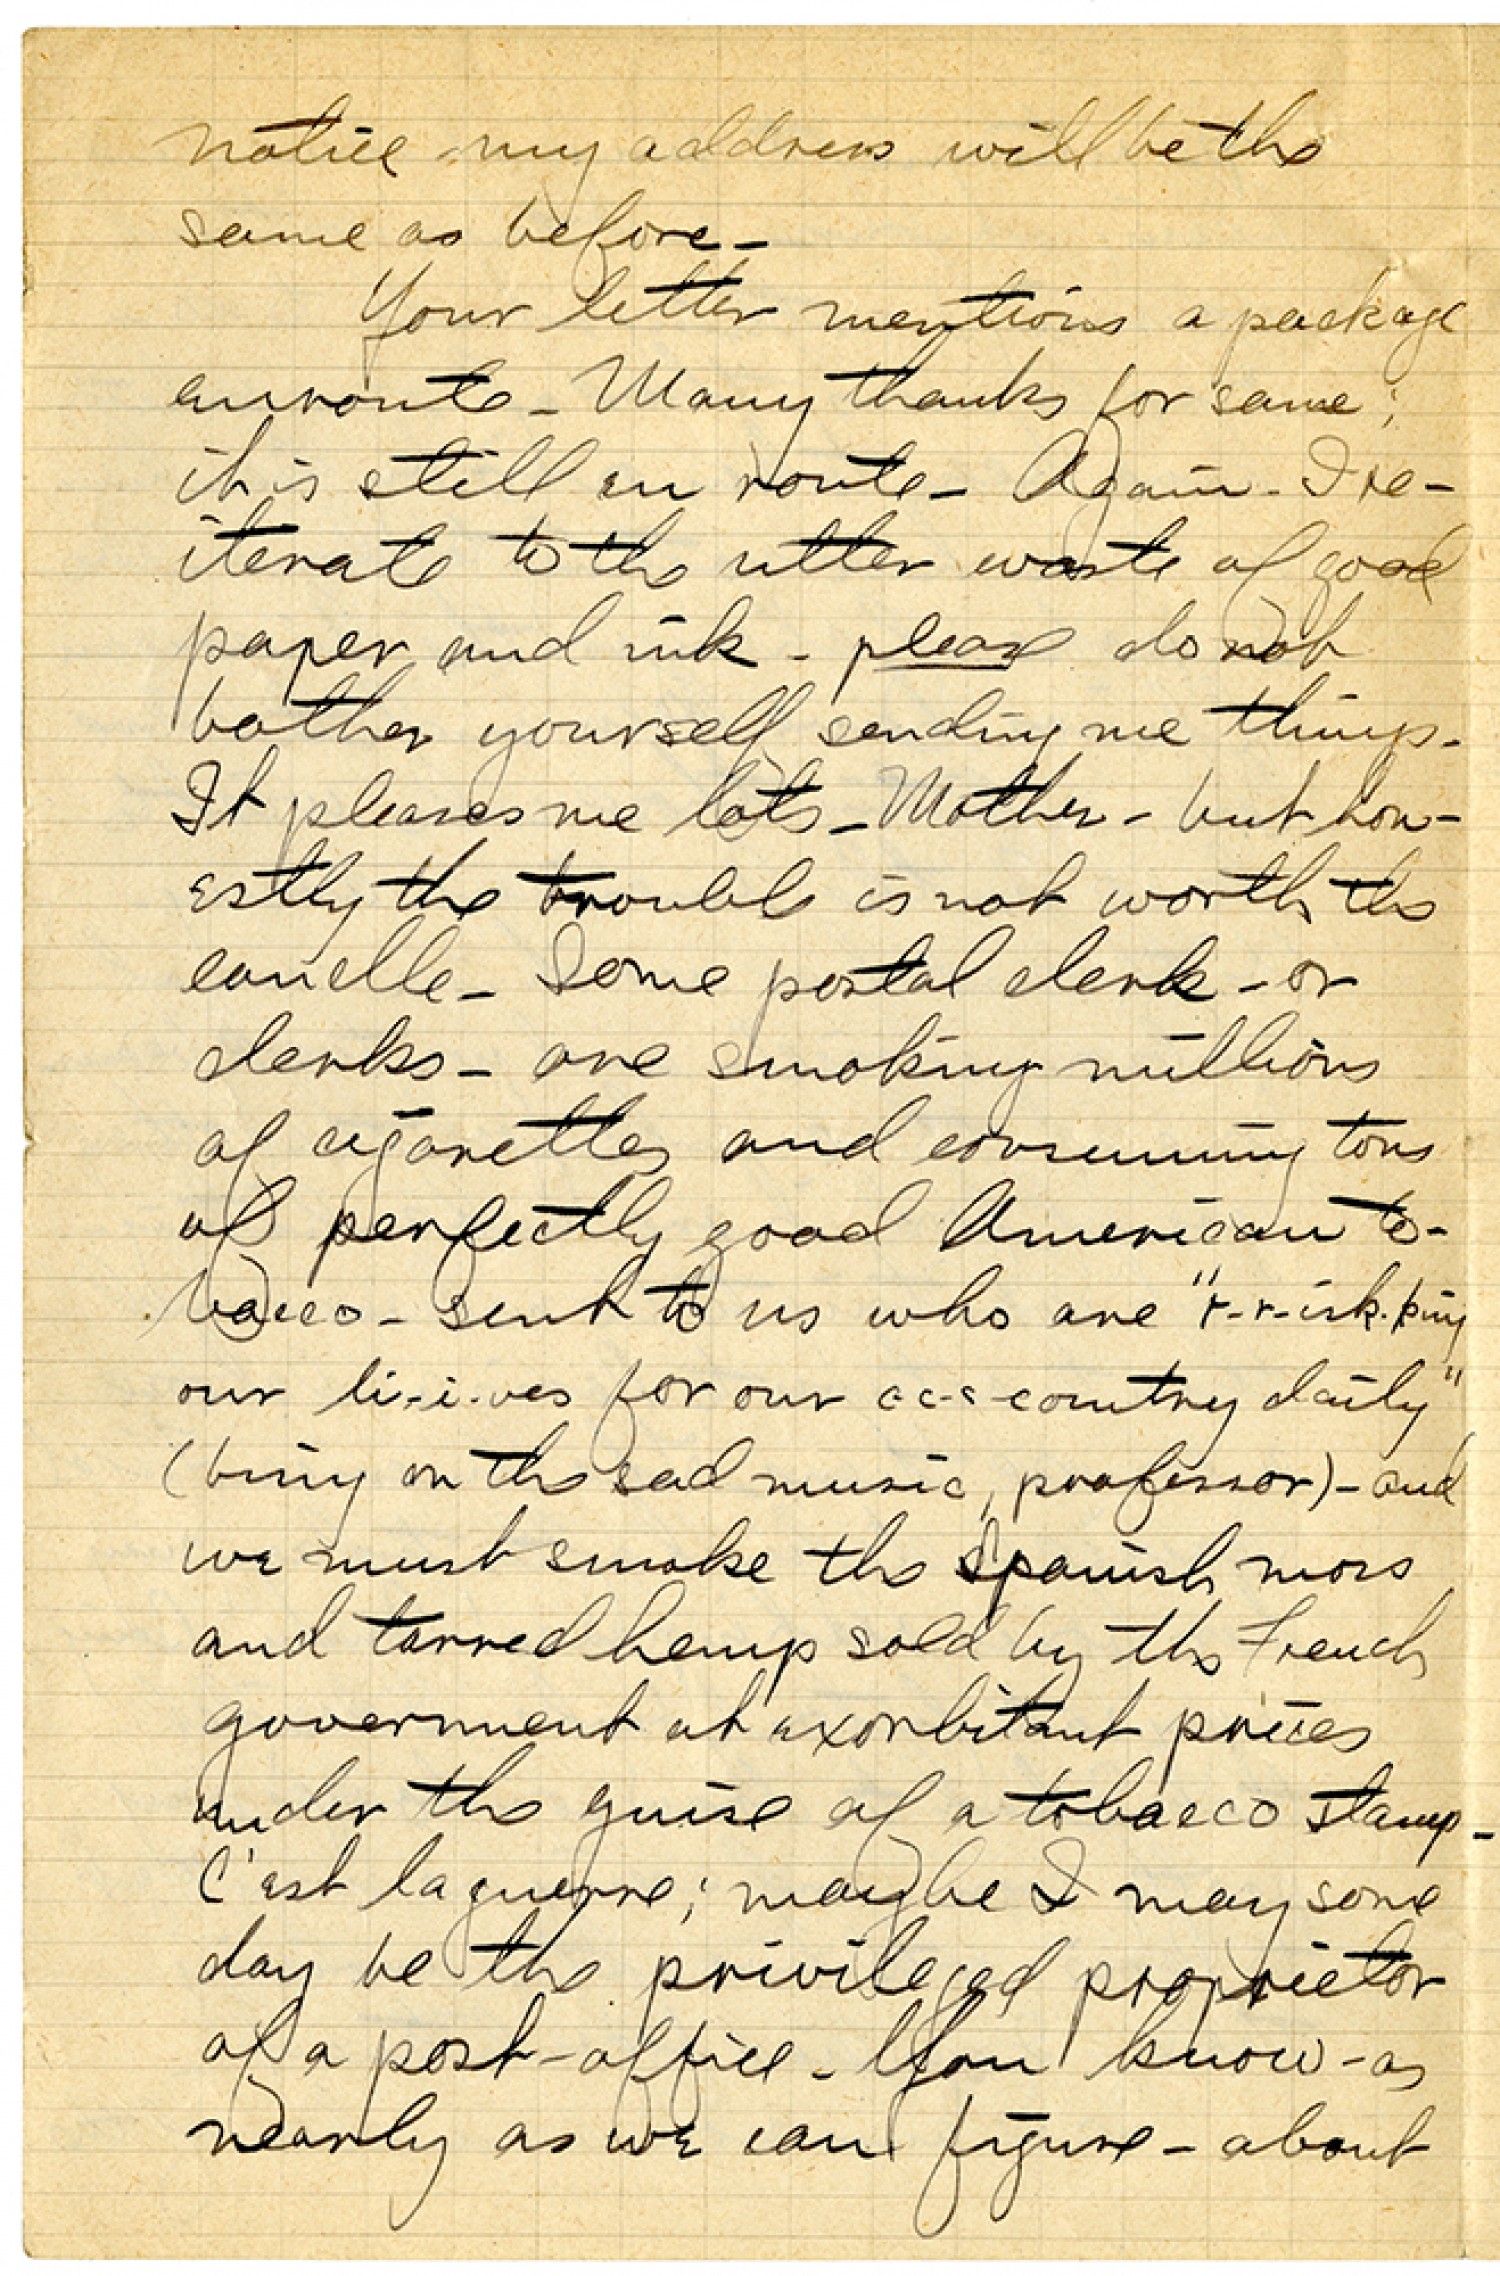 notice my address will be the
same as before -
Your letter mentions a package
enroute - Many thanks for same;
it is still en route - Again - I re-
iterate to the utter waste of good
paper and ink - please do not
bother yourself sending me things -
It pleases me lots - Mother - but hon-
estly the trouble is not worth the
candle - Some postal clerk - or
clerks - are smoking millions
of cigarettes and consuming tons
of perfectly good American to-
bacco - sent to us who are "r-r-isk-king
our li-i-ves for our c-c-c-country daily"
(bring on the sad music, professor) - and
we must smoke the Spanish moss
and tarred hemp sold by the French
government at exorbitant prices
under the guise of a tobacco stamp -
C'est la guerre; maybe I may some
day be the privileged proprietor
of a post-office - You know - as
nearly as we can figure - about